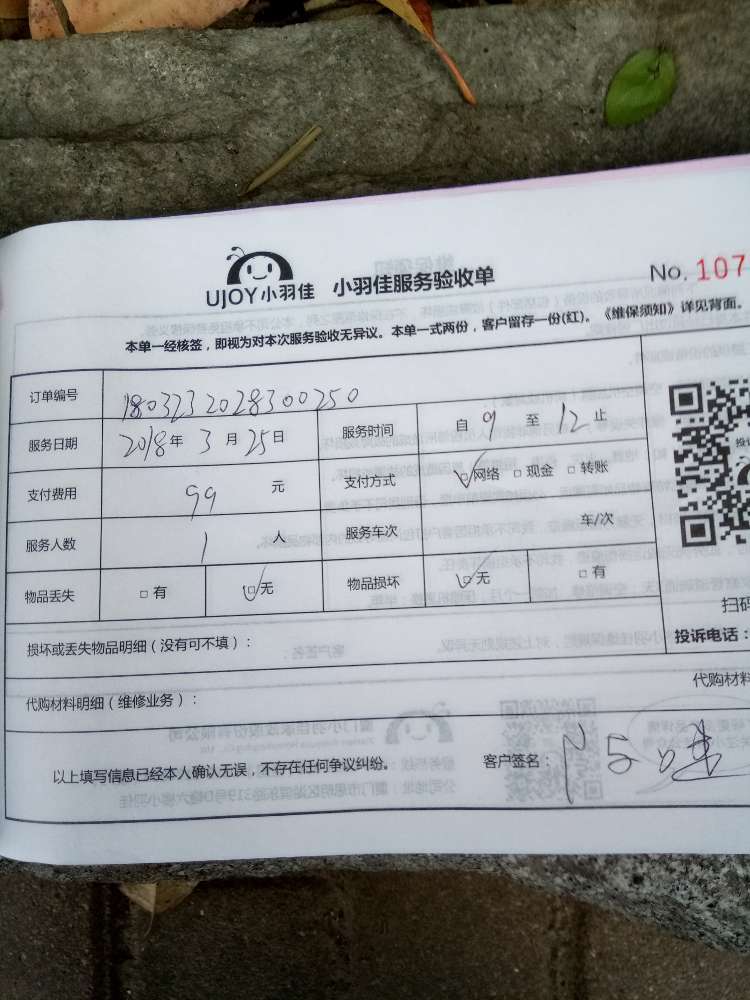 UJOY小羽佳 小羽佳服务验收单 No. 107
本单一经核签，即视为对本次服务验收无异议。本单一式两份，客户留存一份(红)。《维保须知》详见背面。
订单编号 1803232028300250
服务日期 2018年3月25日 服务时间 自9至12止
支付费用 99元 支付方式 ☑网络 □现金 □转账
服务人数 1人 服务车次 车/次
物品丢失 □有 ☑无 物品损坏 ☑无 □有
扫码
损坏或丢失物品明细（没有可不填）： 投诉电话：
代购材料明细（维修业务）： 代购材料
以上填写信息已经本人确认无误，不存在任何争议纠纷。 客户签名：